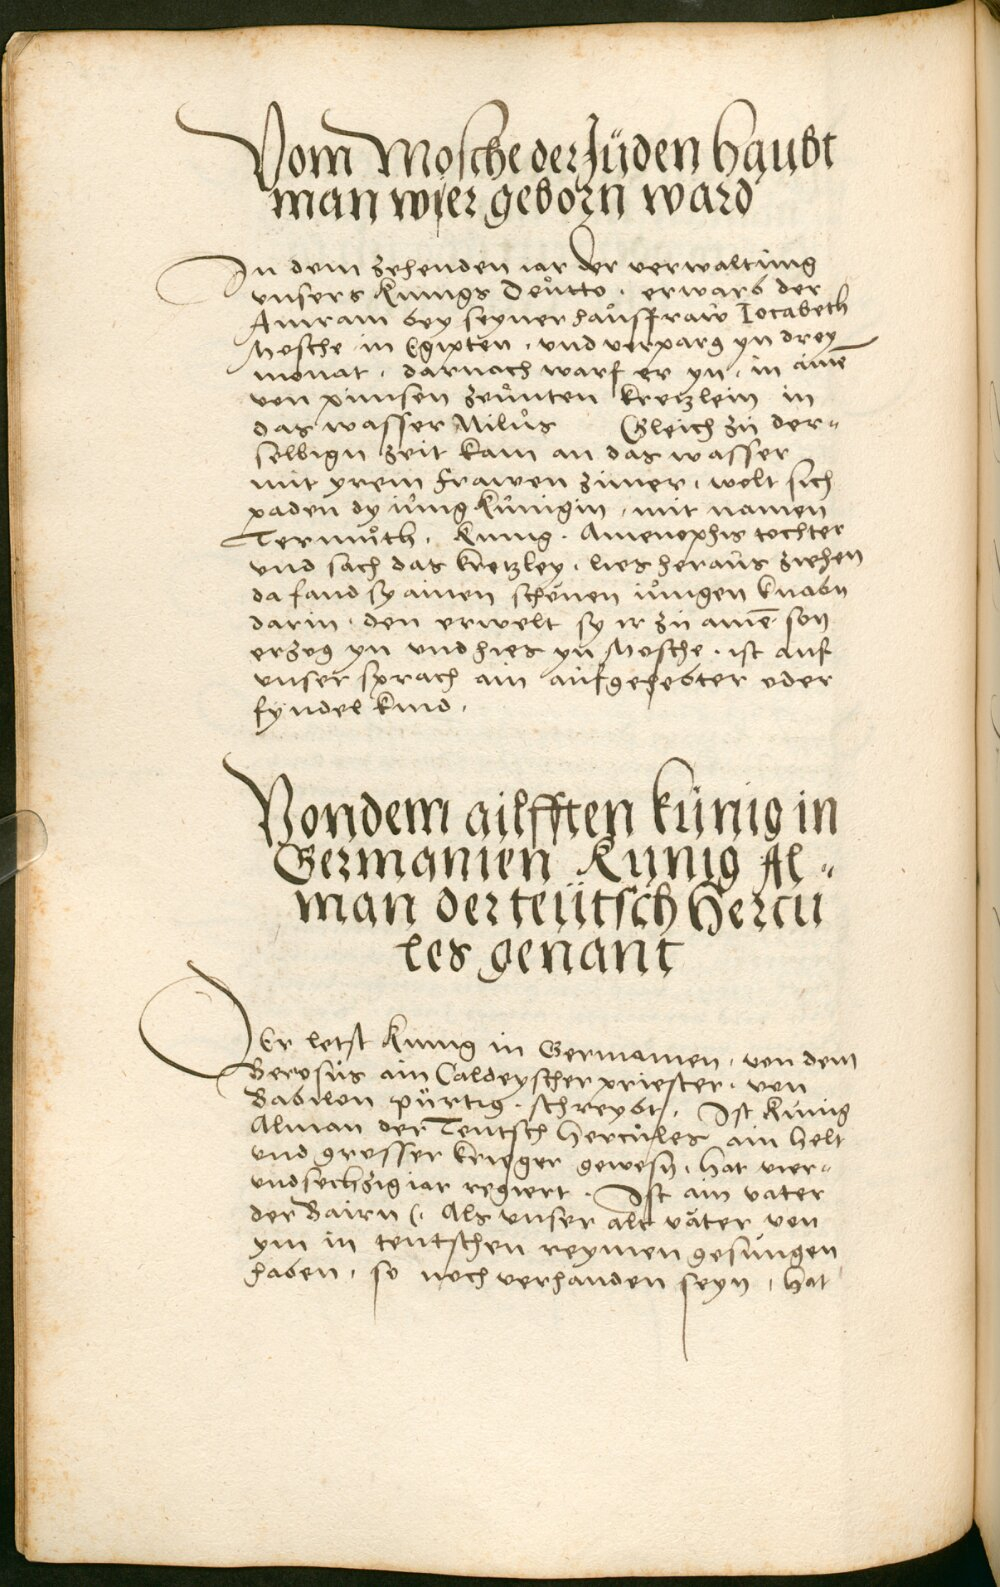 Vom Mosche der Jüden haubt
man wier geborn ward
In dem zehenden iar der verwaltung
vnsers Kunigs Deutto . erwarb der
Amram bey seyner haůsfraw Iocabeth
Mosche in Egipten . vnd verparg yn drey
monat . darnach warf er yn . in aimē
von pimsen zeůnten kretzlein in
das wasser Nilůs Gleich zů der⸗
selbign zeit kam an das wasser
mit yrem frawen zimer . welt sich
paden dy iůng Kůnigin . mit namen
Termůth . Kunig . Amenophis tochter
vnd sach das kretzley . lies heraůs ziehen
da fand sy ainen schönen iůngen knabn
darin . den erwelt sy ir zů amē son
erzog yn vnd hies yn Mosche . ist auf
vnser sprach ain aůfgehebter oder
fyndel kind .
Von dem ailfften künig in
Germanien Kunig Al⸗
man der teütsch Hercu
les genant
Der letst Kunig in Germanien . von dem
Berosůs ain Caldeyscher priester . von
Babilon pürtig . schreybt . Ist Kunig
Alman der Teutsch Hercůles ain helt
vnd grosser krieger gewesn . hat vier⸗
vndsechzig iar regiert . Ist ain vater
der Bairn (. Als vnser alt väter von
ym in teutschen reymen gesungen
haben . so noch verhanden seyn . hat